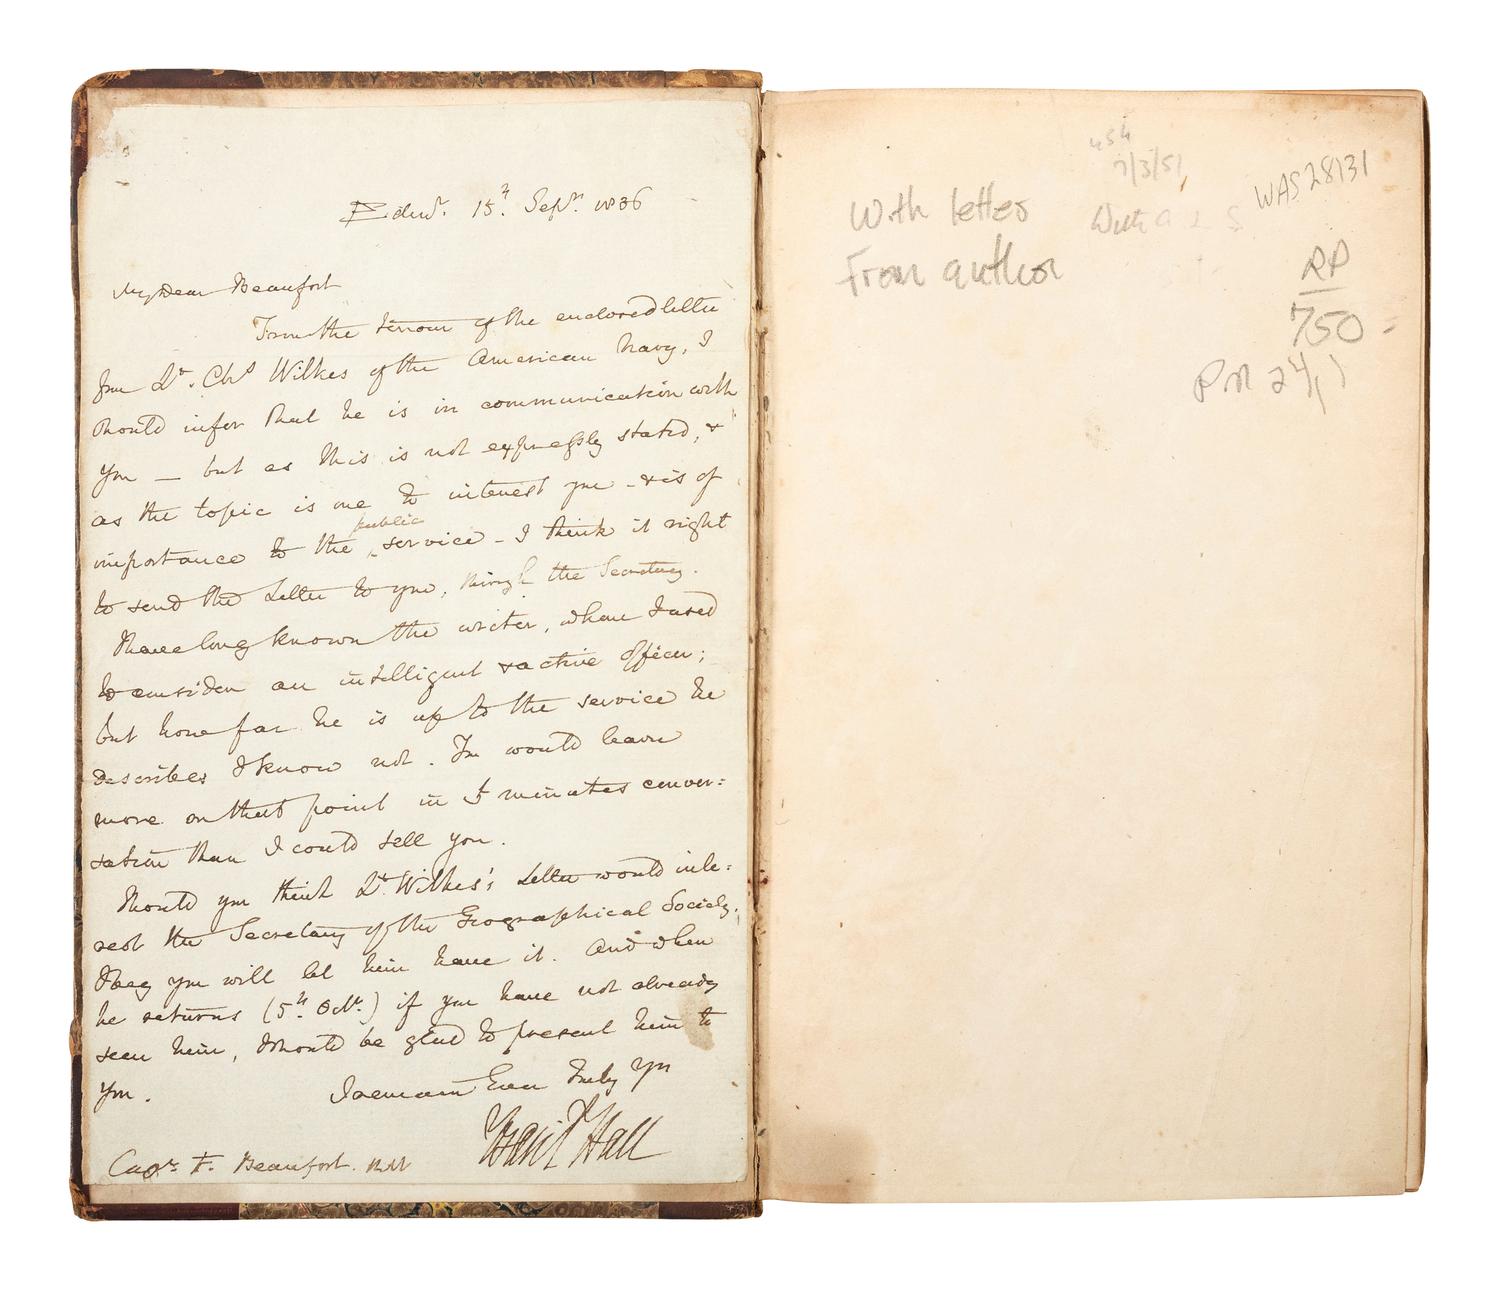 Edinr. 15th. Sepr. 1836
My Dear Beaufort
From the tenour of the enclosed letter
from Lt. Chs Wilkes of the American Navy, I
should infer that he is in communication with
you — but as this is not expressly stated, &
as the topic is one to interest you - & is of
importance to the public service - I think it right
to send the Letter to you, through the Secretary.
I have long known the writer, whom I used
to consider an intelligent & active officer;
but how far he is up to the service he
describes I know not. You would learn
more on that point in 5 minutes conver=
sation than I could tell you.
Should you think Lt. Wilkes's Letter would inte=
rest the Secretary of the Geographical Society,
I beg you will let him have it. And when
he returns (5th. Octr.) if you have not already
seen him, I should be glad to present him to
you.
I remain Ever Truly Yrs
Basil Hall
Capn. F. Beaufort. RN
454
7/3/51
WAS 28131
With letter
With A L S
From author
RP
750 =